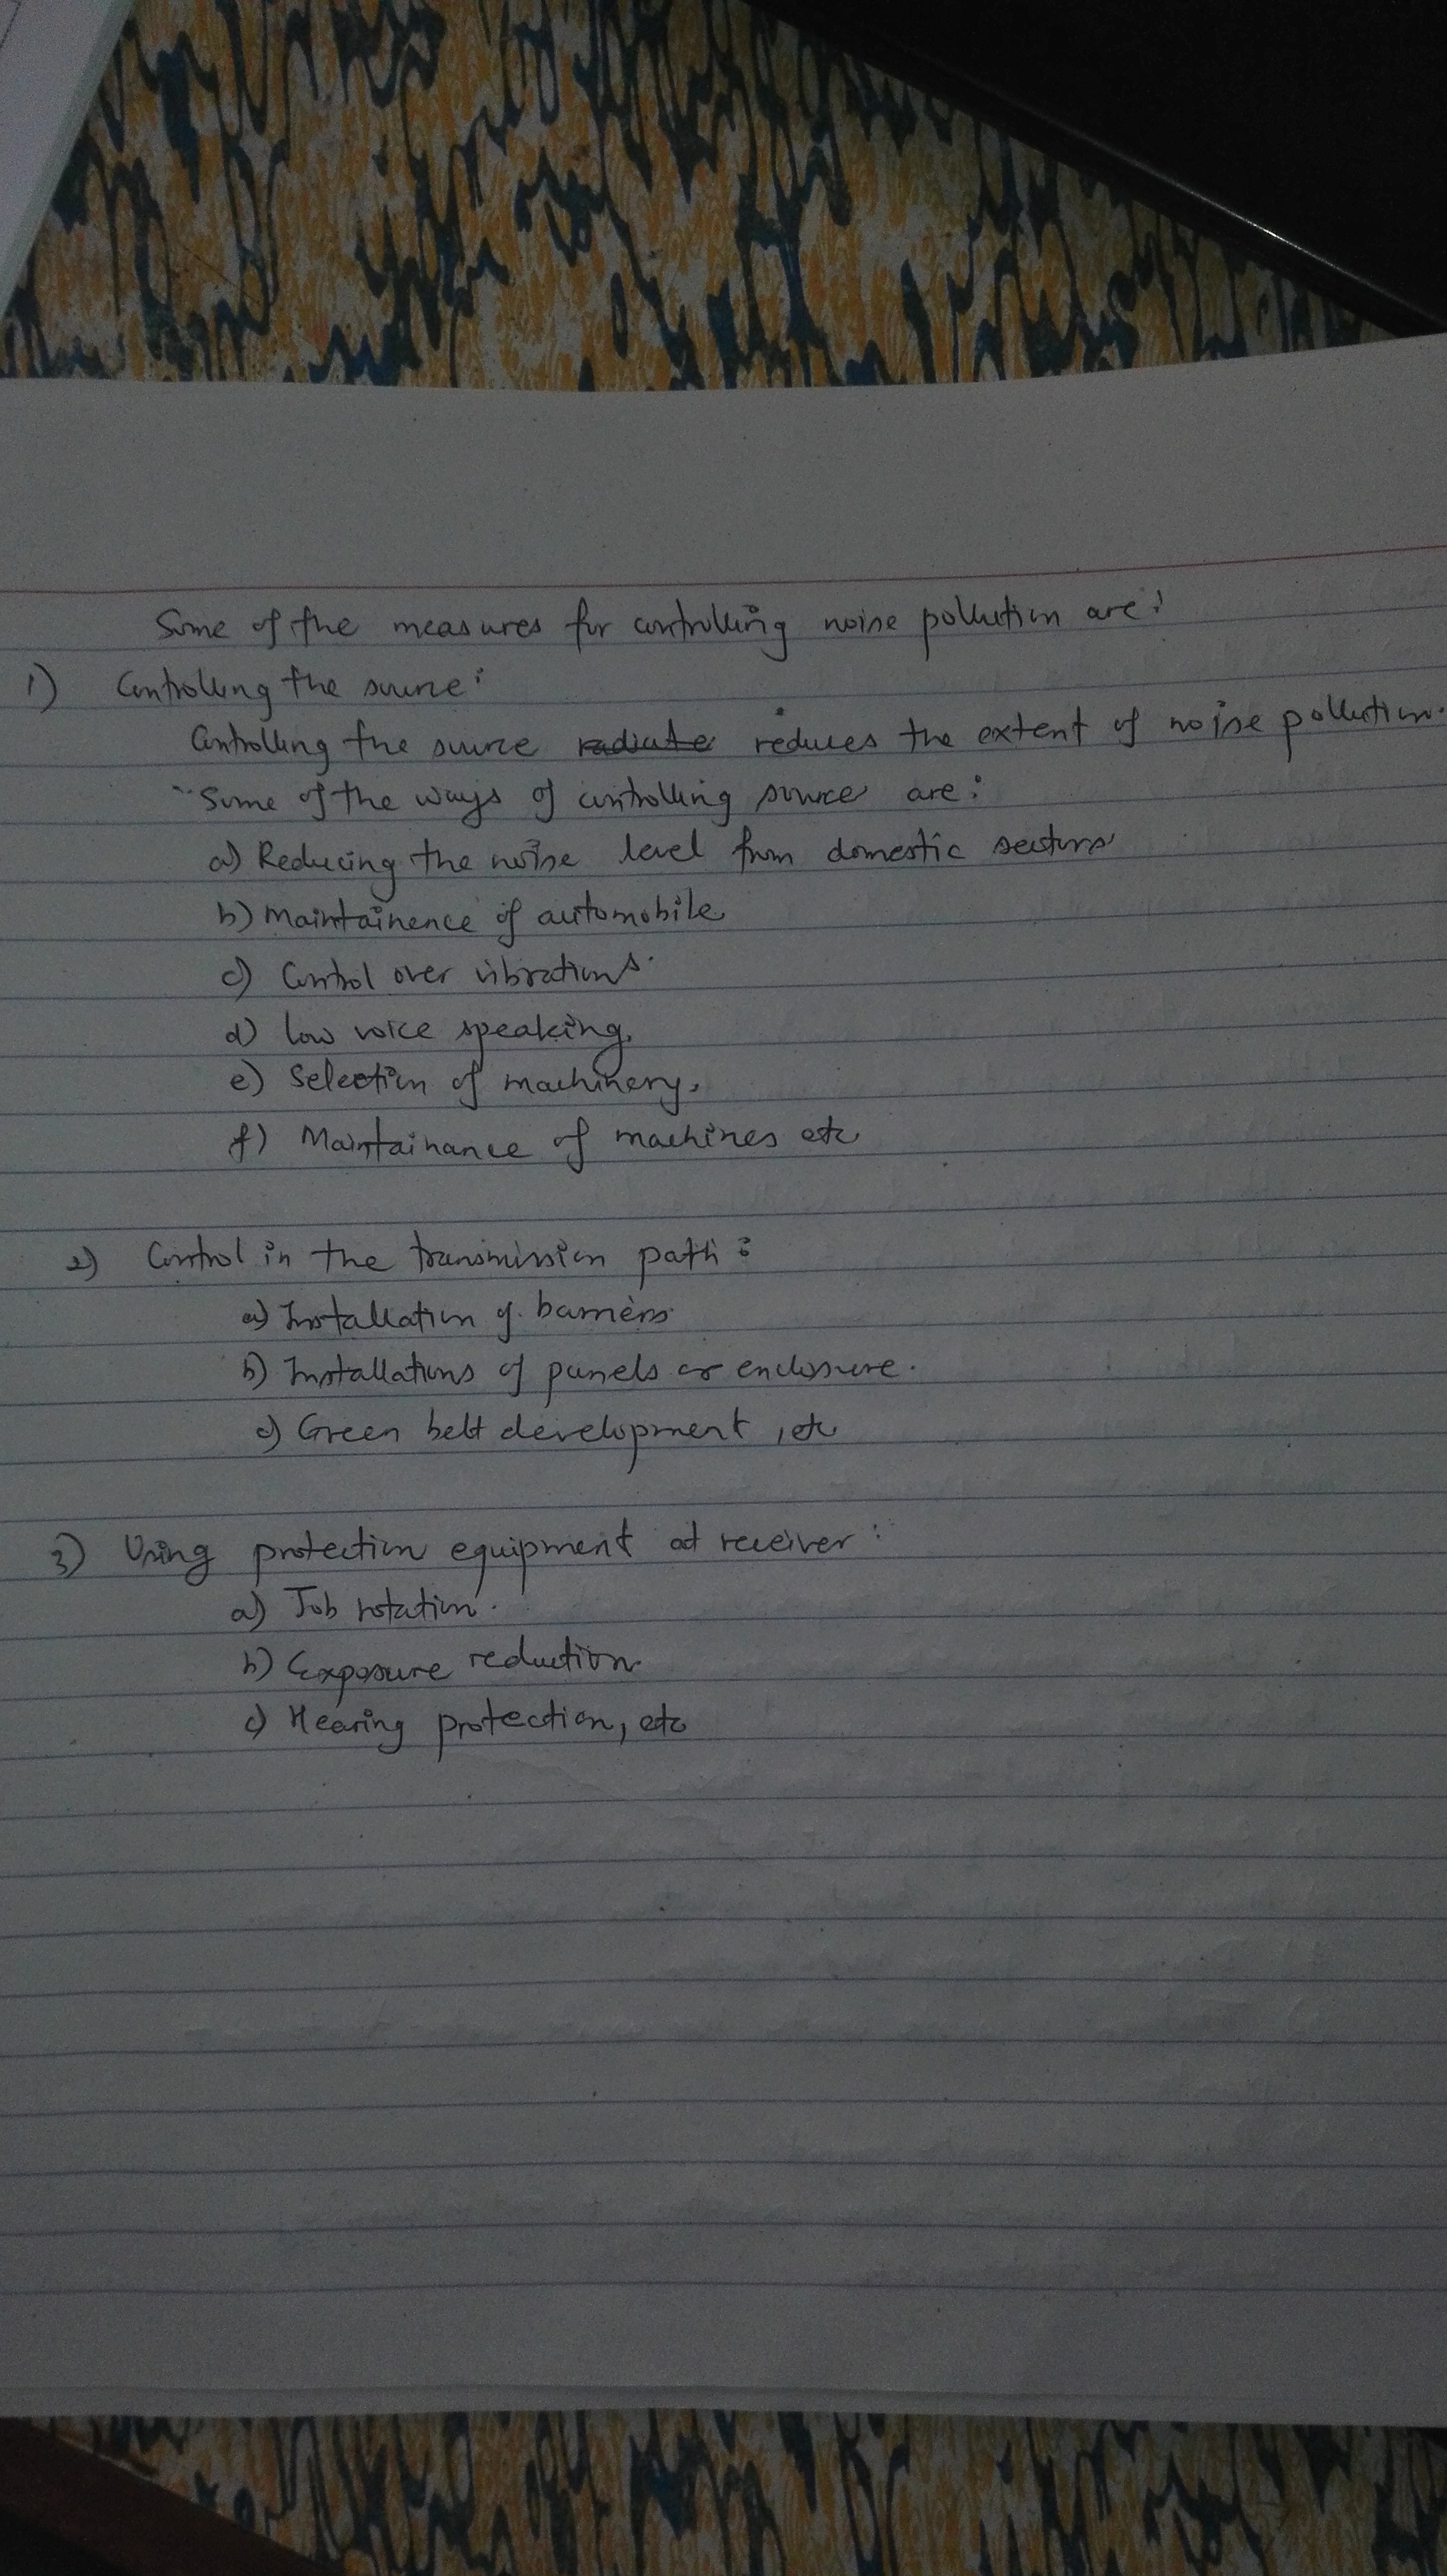 Some of the measures for controlling noise pollution are:
1) Controlling the source:
Controlling the source radiate reduces the extent of noise pollution.
Some of the ways of controlling source are:
a) Reducing the noise level from domestic sectors
b) Maintainence of automobile
c) Control over vibrations.
d) Low voice speaking.
e) Selection of machinery.
f) Maintainance of machines etc
2) Control in the transmission path:
a) Installation of barriers
b) Installations of panels or enclosure.
c) Green belt development, etc
3) Using protection equipment at receiver:
a) Job rotation.
b) Exposure reduction
c) Hearing protection, etc